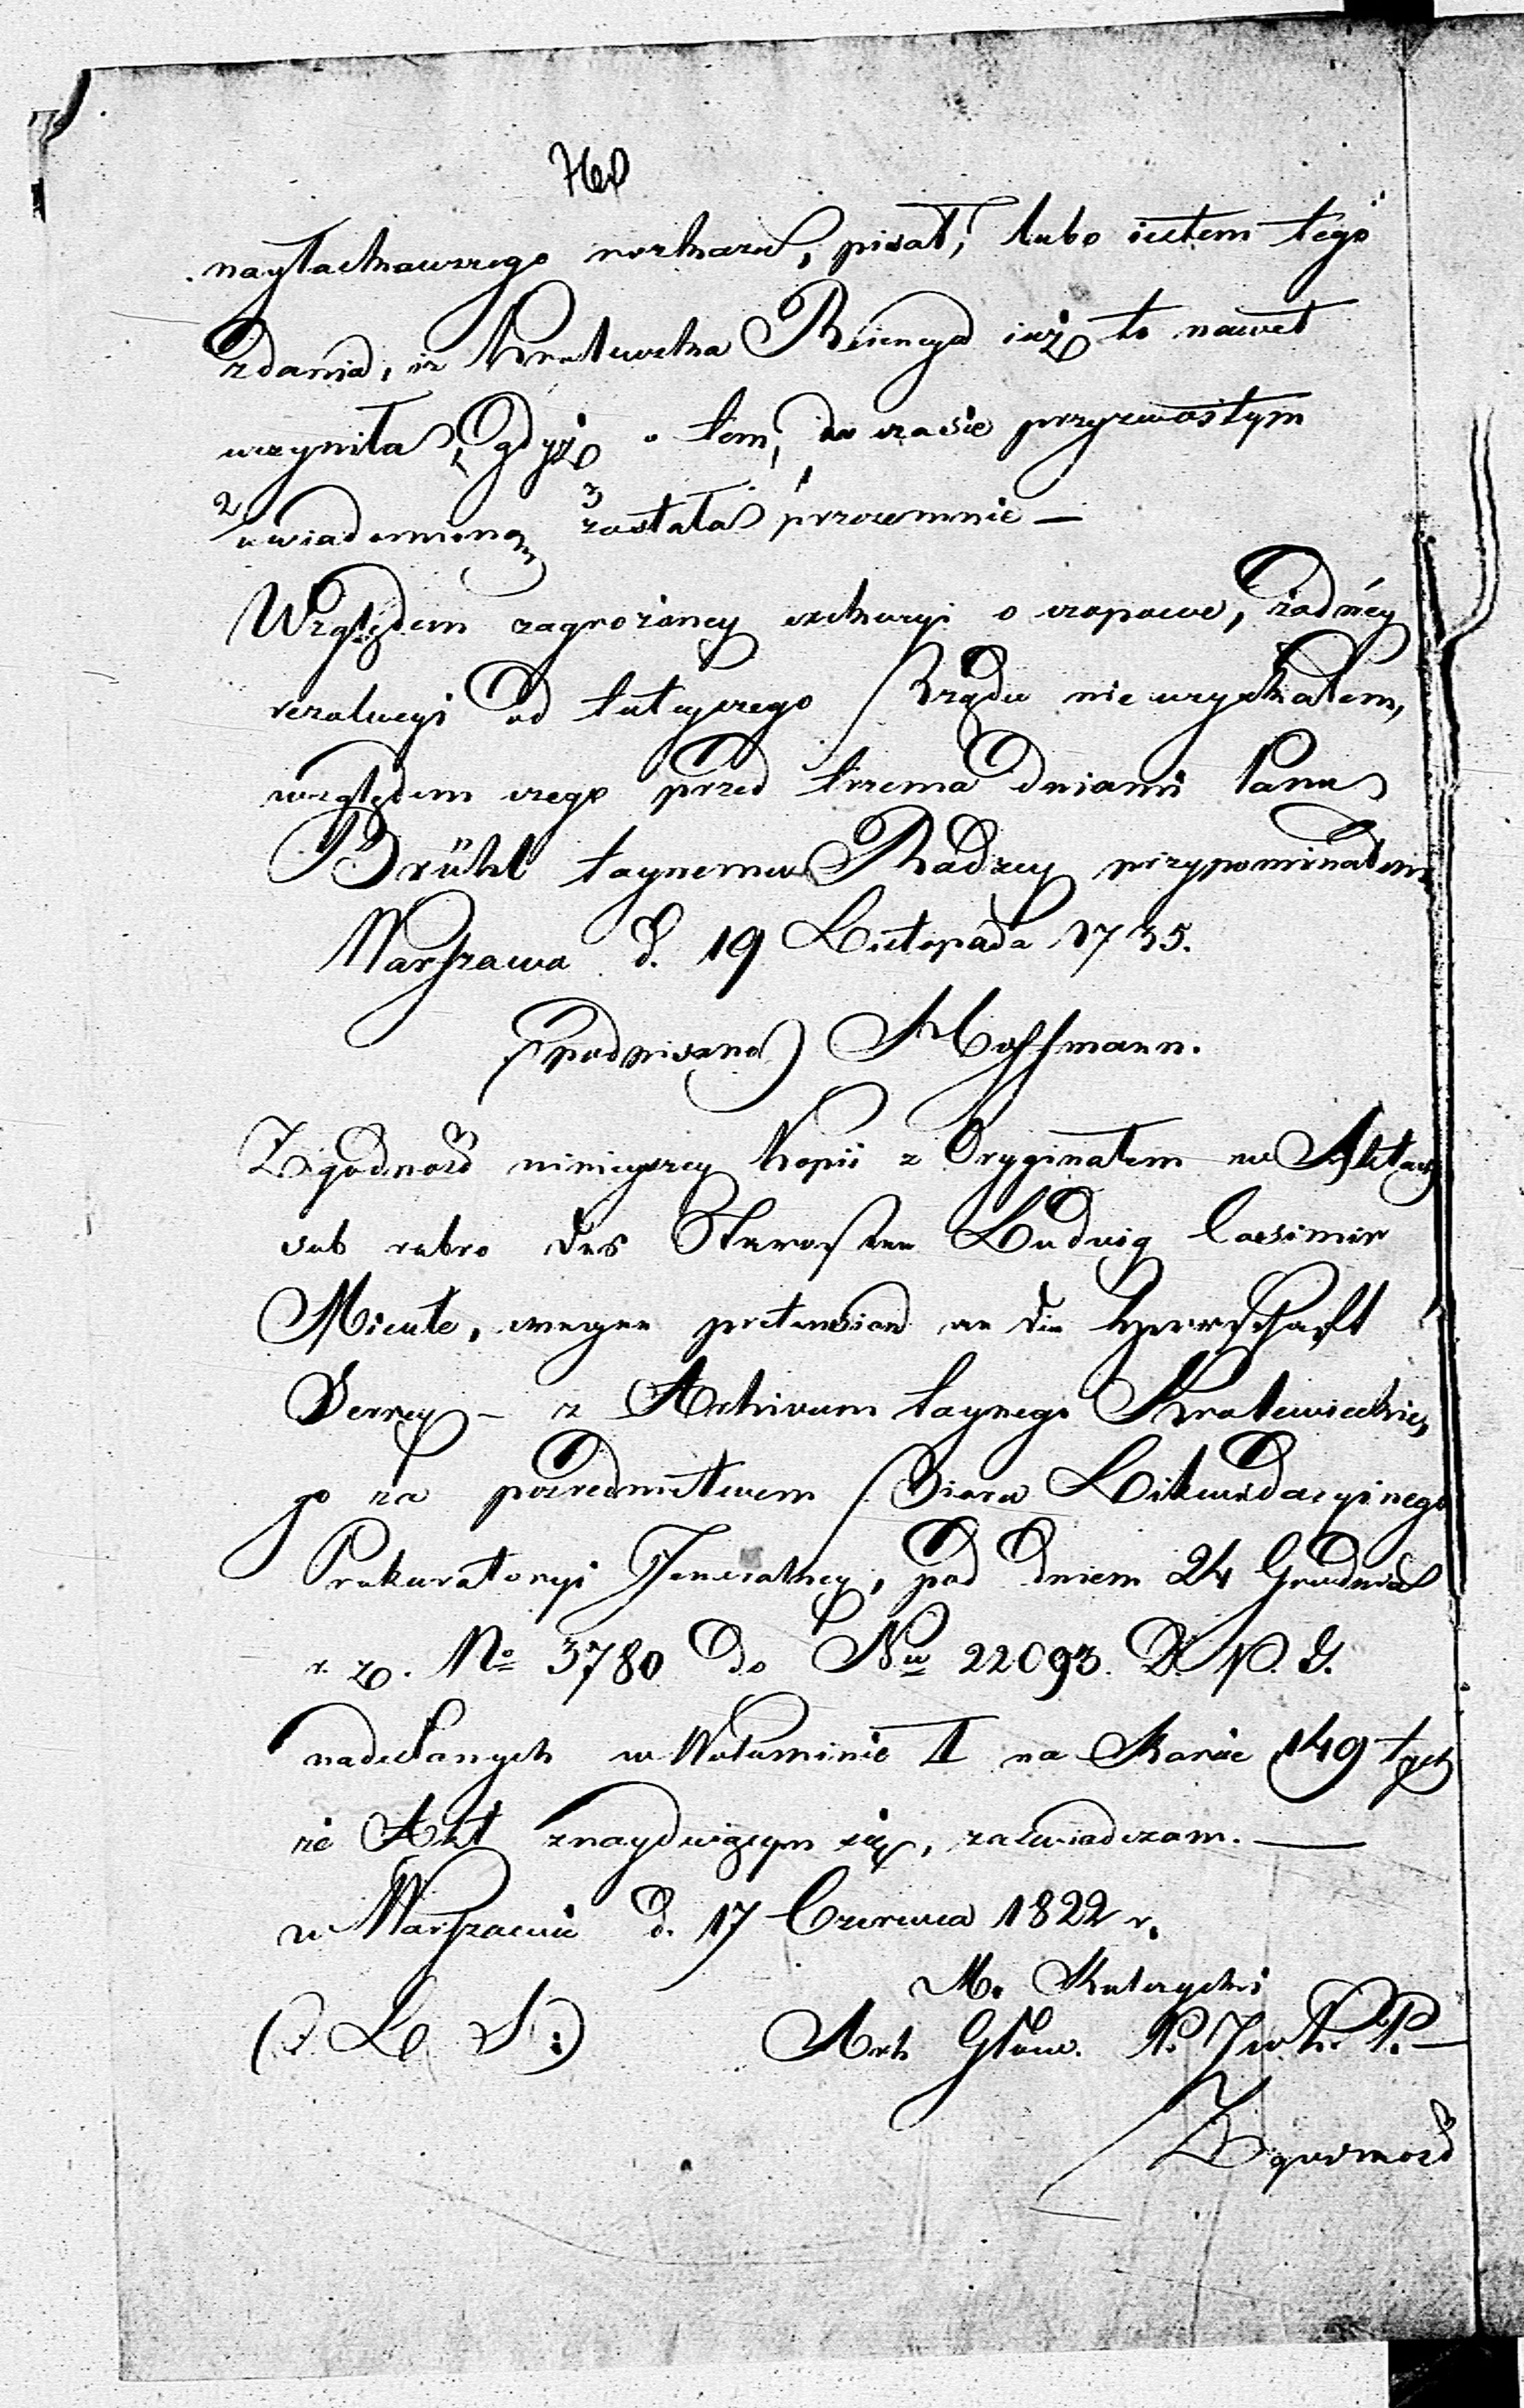 nayłaskawszego rozkazu, pisał, lubo iestem tego
zdania, iż Królewska Rzieneya iuż to nawet
uczyniła, gdyż o tem, w czasie przyzwoitym
2 uwiadomioną 3 została 1 przezemnie —
Względem zagrożoney exekucyi o czopowe, żadnéy
rezolucyi od tuteyszego Rządu nie uzyskałem,
względem czego przed trzema dniami Panu
Brühl taynemu Radzcy przypominałem
Warszawa d. 19 Listopada 1735.
(podpisano) Hoffmann.
Zgodność ninieyszey kopii z Oryginałem w Aktach
sub rubro des Starosten Ludwig Casimir
Micute, wegen pretension an die Herrschaft
Serrey – z Archivum taynego Królewieckie
go za pośrednictwem Biura Likwidacyinego
Prokuratoryi Jeneralney, pod dniem 24 Grudnia
r. z. No 3780 do Nru 22093. D. P. G.
nadesłanych w Woluminie I na Karcie 149 tych
że Akt znayduiącym się, zaświadczam. —
w Warszawie d. 17 Czerwca 1822 r.
M.
(: L. S :) Arch Głów. P.
Zgodność